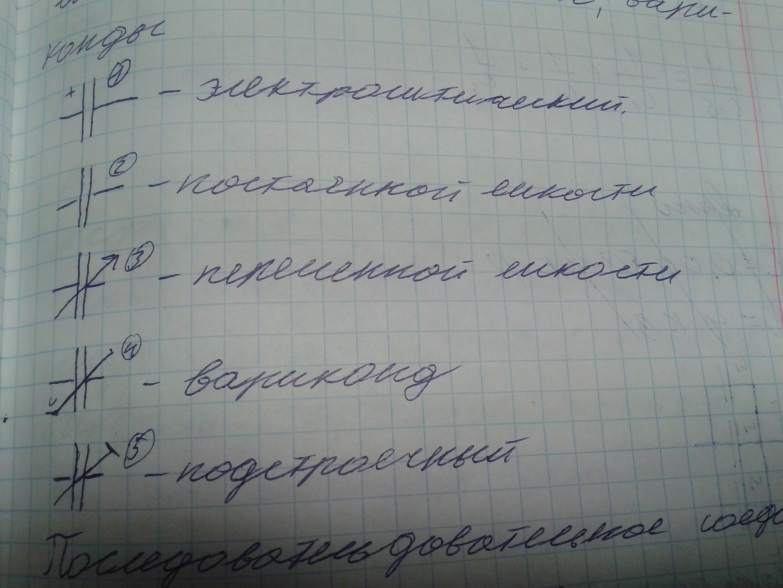 , вари-
конды
+ 1 - электролитический.
2 - постоянной емкости
3 - переменной емкости
4 - вариконд
U
5 - подстроечный
Последовательдовательное соед